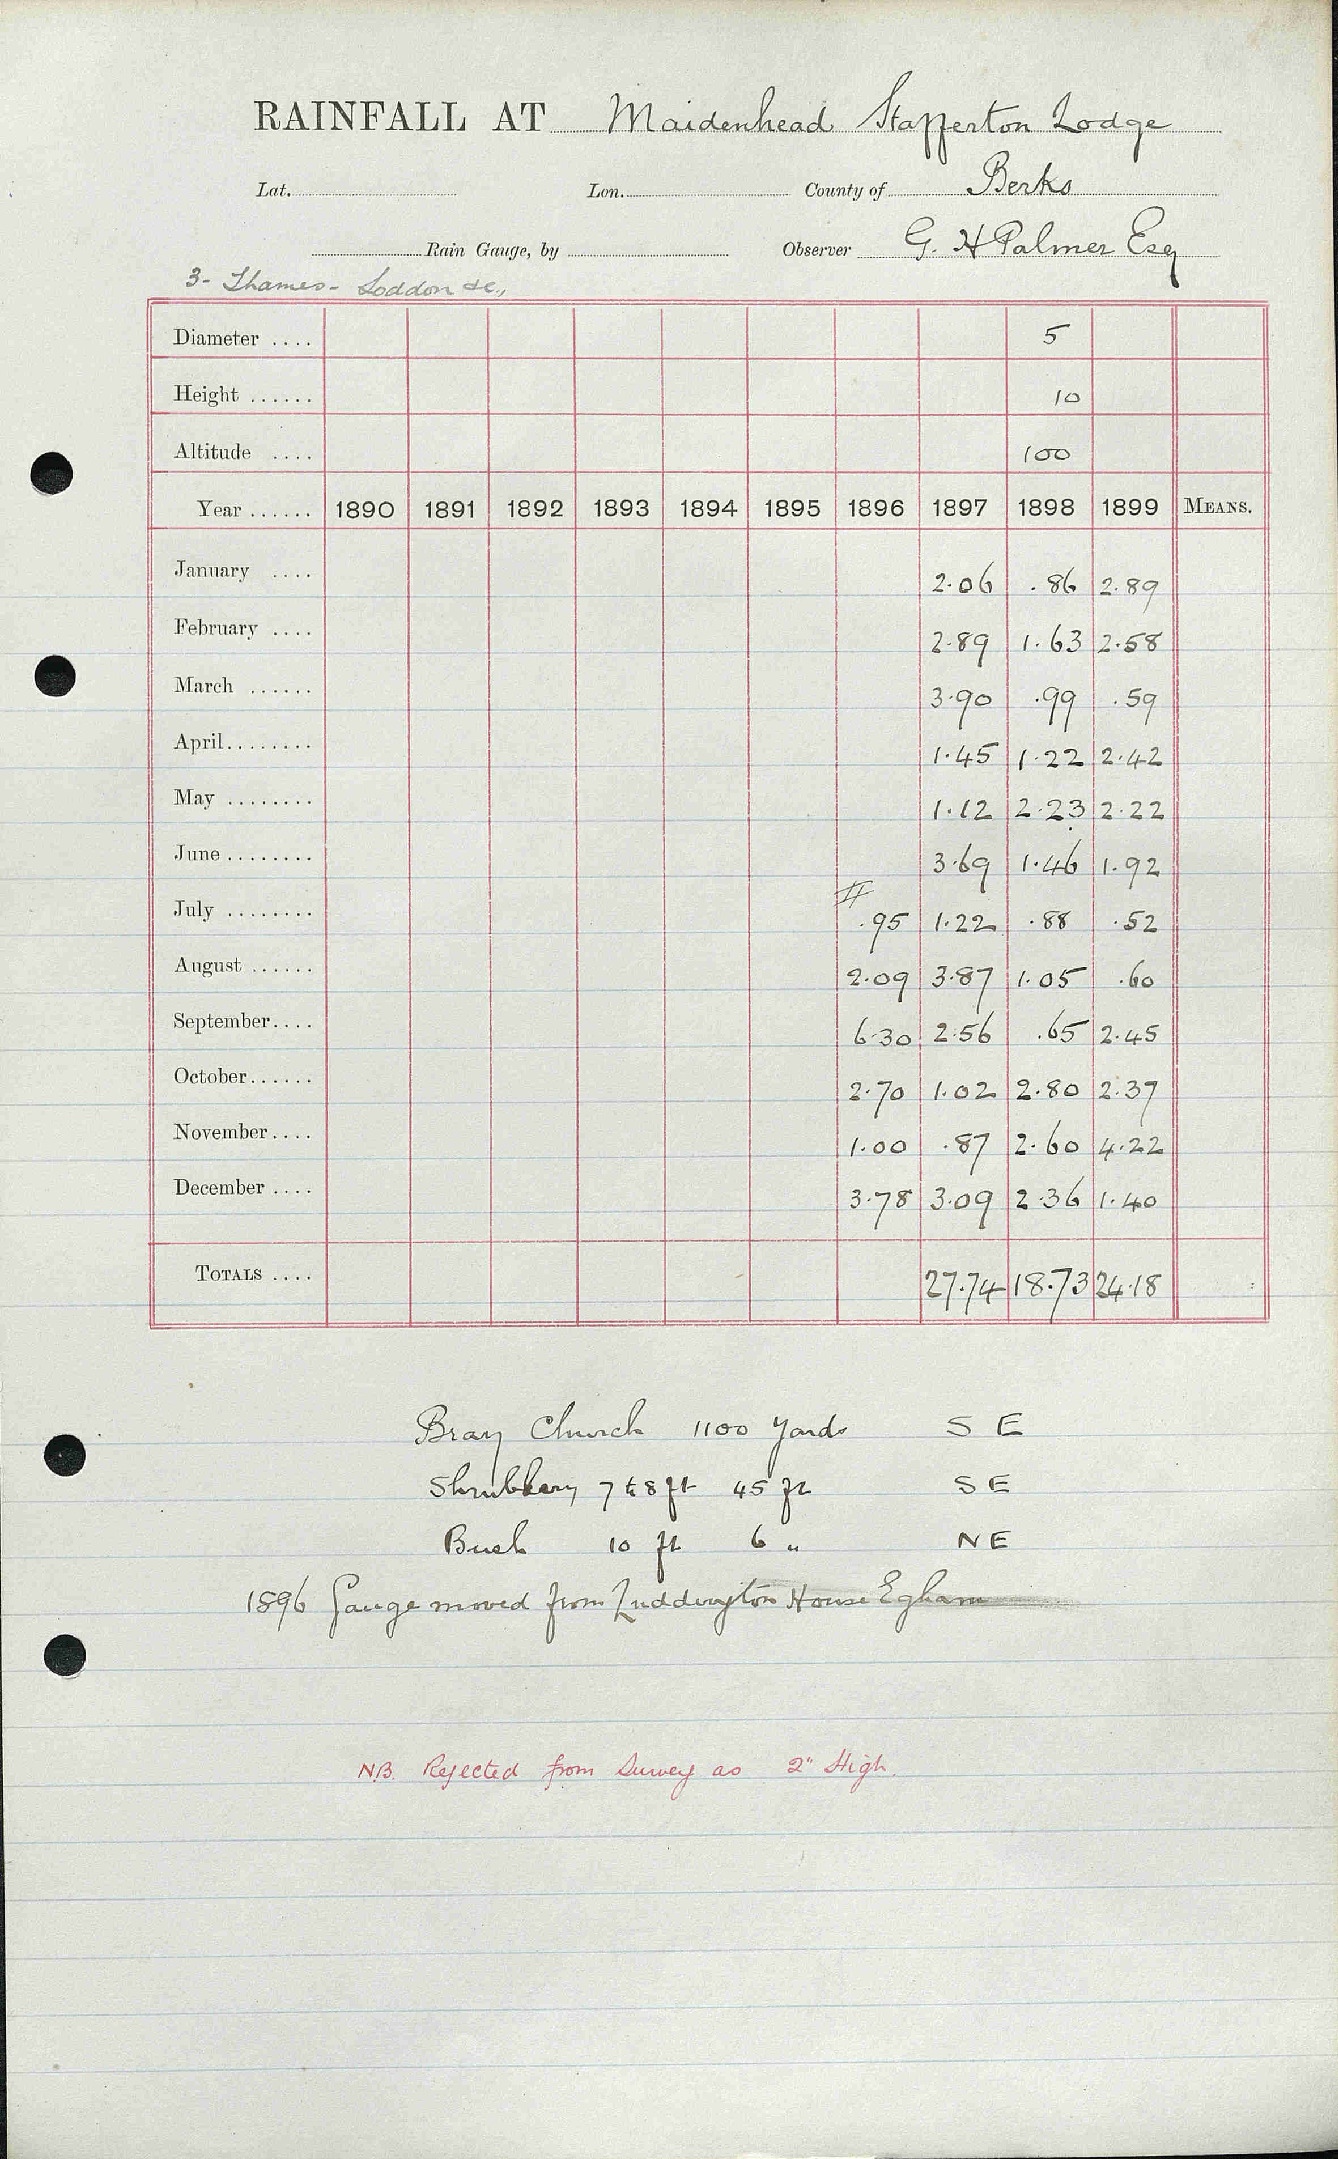 RAINFALL AT Maidenhead Stafferton Lodge
Lat. Lon. County of Berks
Rain Gauge, by Observer G. H Palmer Esq
3- Thames- Loddon &c.,
Diameter .... 5
Height ...... 10
Altitude .... 100
Year ...... 1890 1891 1892 1893 1894 1895 1896 1897 1898 1899 MEANS.
January .... 2.06 .86 2.89
February .... 2.89 1.63 2.58
March ...... 3.90 .99 .59
April........ 1.45 1.22 2.42
May ........ 1.12 2.23 2.22
June ........ 3.69 1.46 1.92
#
July ........ .95 1.22 .88 .52
August ...... 2.09 3.87 1.05 .60
September.... 6.30 2.56 .65 2.45
October...... 2.70 1.02 2.80 2.37
November.... 1.00 .87 2.60 4.22
December .... 3.78 3.09 2.36 1.40
TOTALS .... 27.74 18.73 24.18
Bray Church 1100 Yards S E
Shrubbery 7 to 8 ft 45 ft S E
Bush 10 ft 6 " N E
1896 Gauge moved from Luddington House Egham
N.B. Rejected from Survey as 2" High.